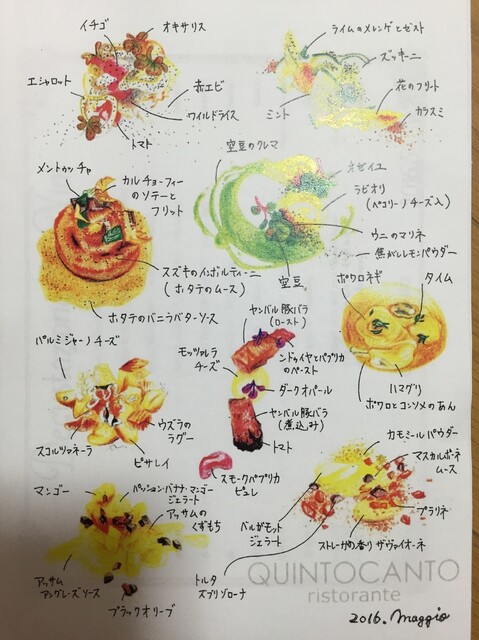 イチゴ
オキサリス
エシャロット
赤エビ
ワイルドライス
トマト
ライムのメレンゲとゼスト
ズッキーニ
花のフリット
ミント
カラスミ
空豆のクレマ
オゼイユ
ラビオリ
(ペコリーノチーズ入)
ウニのマリネ
焦がしレモンパウダー
空豆
メントゥッチャ
カルチョーフィー
のソテーと
フリット
スズキのインボルティーニ
(ホタテのムース)
ホタテのバニラバターソース
ポワロネギ
タイム
ハマグリ
ポワロとコンソメのあん
パルミジャーノチーズ
ウズラの
ラグー
スコルツォネーラ
ピサレイ
ヤンバル豚バラ
(ロースト)
モッツァレラ
チーズ
ンドゥイヤとパプリカ
のペースト
ダークオパール
ヤンバル豚バラ
(煮込み)
トマト
スモークパプリカ
ピュレ
マンゴー
パッション・バナナ・マンゴー
ジェラート
アッサムの
くずもち
アッサム
アングレーズソース
ブラックオリーブ
カモミールパウダー
マスカルポーネ
ムース
プラリネ
ベルガモット
ジェラート
ストレーガの香り ザヴァイオーネ
トルタ
ズブリゾローナ
QUINTOCANTO
ristorante
2016. Maggio